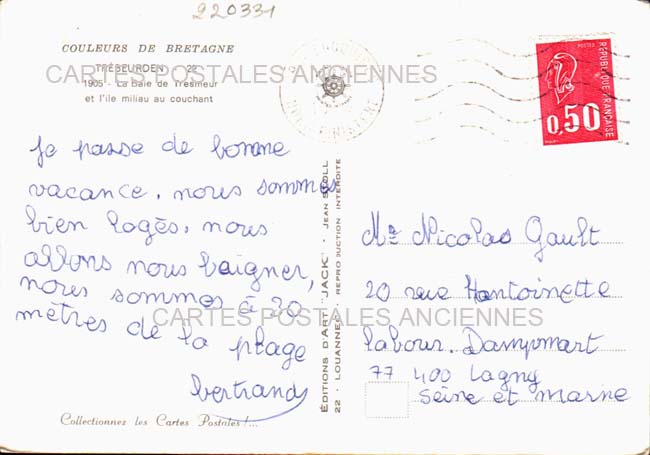 220331
COULEURS DE BRETAGNE
TRÉBEURDEN 22
1905 - La Baie de Tresmeur
et l'île miliau au couchant
POSTES
RÉPUBLIQUE FRANÇAISE
0,50
CARTES POSTALES ANCIENNES
je passe de bonne
vacance. nous sommes
bien logés, nous
allons nous baigner,
nous sommes à 20
mètres de la plage
bertrand
ÉDITIONS D'ART "JACK" - JEAN
22 - LOUANNEC - REPRODUCTION INTERDITE
Mr Nicolas Gault
20 rue Hantoinette
labour. Dampmart
77 400 Lagny
Seine et Marne
CARTES POSTALES ANCIENNES
Collectionnez les Cartes Postales !...